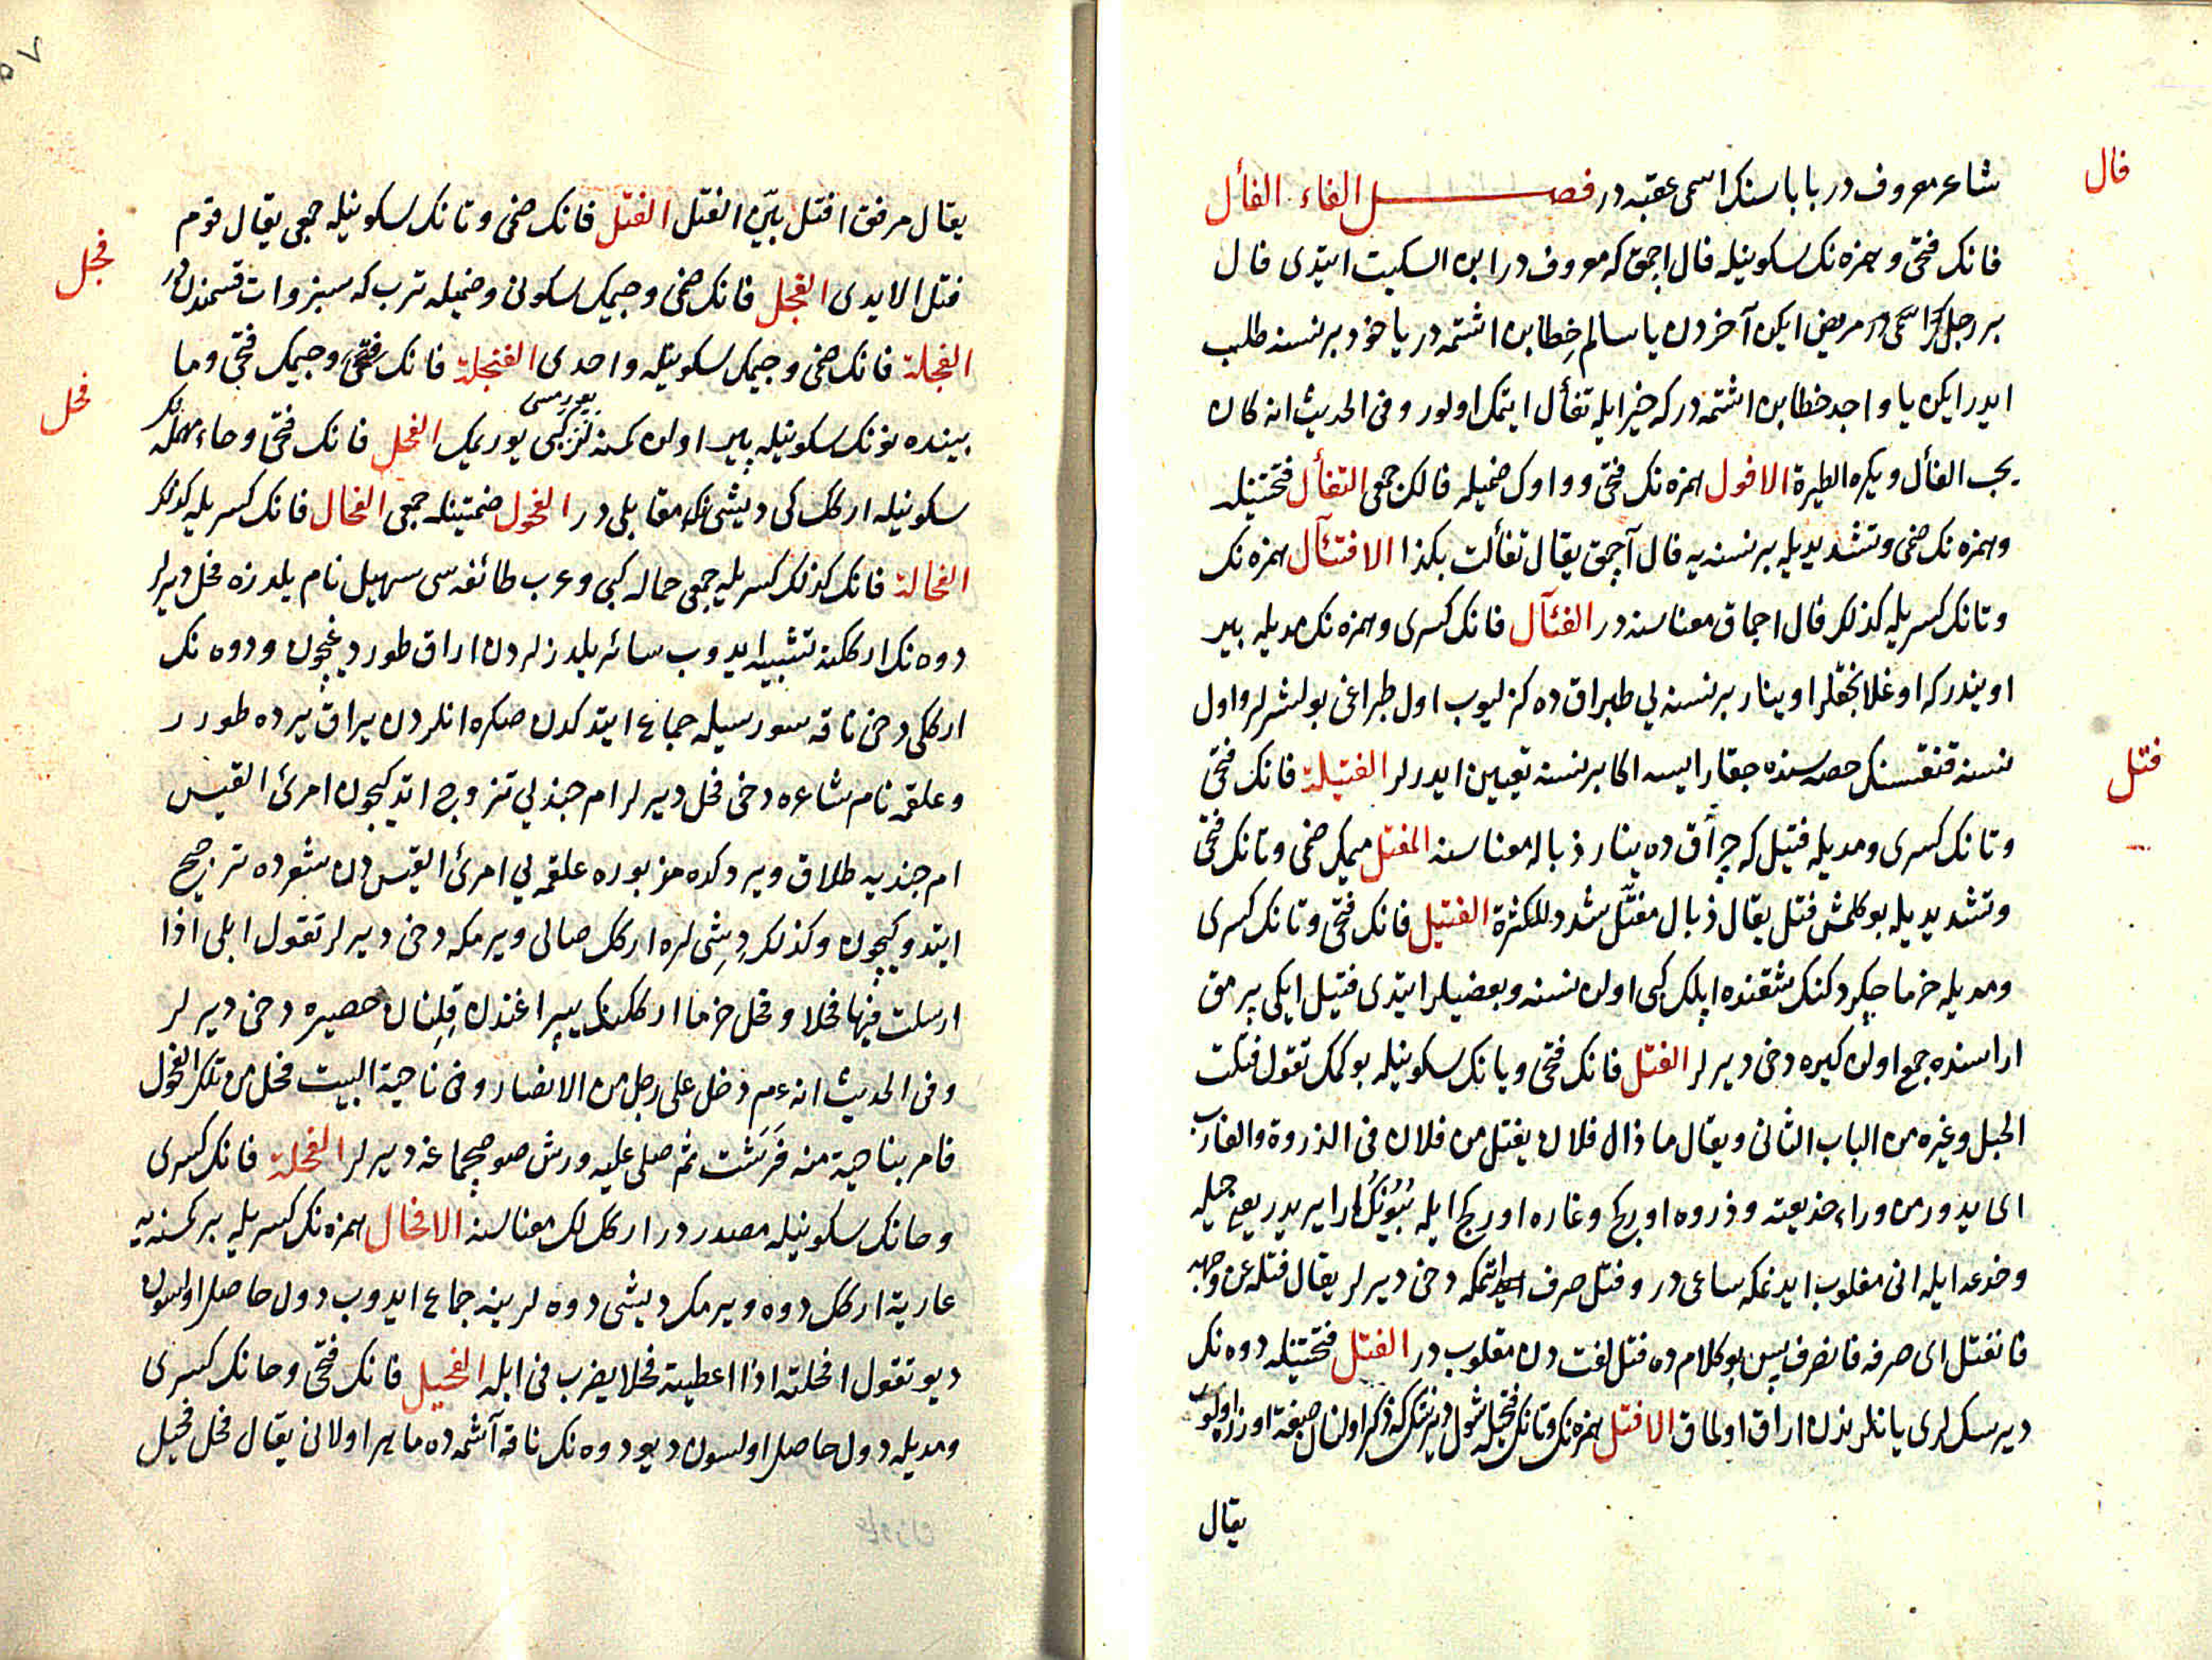 فال
شاعر معروف در باباسنك اسمى عقبه در فصل الفاء الفأل
فانك فتحى و همزه نك سكونيله فال اچمق كه معروف در ابن السكيت ايتدى فال
بر رجل مريض ايكن آخردن يا سالم خطابن اشتمه در ياخود بر نسنه طلب
ايدر ايكن يا واجد خطابن اشتمه در كه خير ايله تفأل ايتمك اولور وفى الحديث انه كان
يحب الفأل ويكره الطيرة الافول همزه نك فتحى و واوك ضميله فالك جمعى التفأل فتحتينله
وهمزه نك ضمى وتشديديله بر نسنه يه فال آچمق يقال تفألت بكذا الافتئال همزه نك
وتانك كسريله كذلك فال اچماق معناسنه در الفئال فانك كسرى وهمزه نك مديله بر
اويندر كه اوغلانجقلر اوينار بر نسنه يى طپراق ده كزليوب اول طپراغى بولشرلر و اول
فتل
نسنه قنقسنك حصه سنده چقار ايسه اكا بر نسنه تعيين ايدرلر الفتيلة فانك فتحى
وتانك كسرى ومديله فتيل كه چراق ده ينار ذباله معناسنه المفتل ميمك ضمى وتانك فتحى
وتشديديله بوكلمش فتل يقال ذبال مفتّل شدد للكثرة الفتيل فانك فتحى وتانك كسرى
ومديله خرما چكردكنك شقنده ايلك كبى اولان نسنه وبعضيلر ايتدى فتيل ايكى پرمق
اراسنده جمع اولان كيره دخى ديرلر الفتل فانك فتحى و يانك سكونيله بوكمك تقول فتلت
الحبل وغيره من الباب الثانى ويقال ما زال فلان يفتل من فلان فى الذروة والغارب
اى يدور من وراء خديعته وذروه اوركج وغاره اوركج ايله بيونك ارا يريدر يعنى حيله
وخدعه ايله انى مغلوب ايدنمكه ساعى در وفتل صرف اتمكه دخى ديرلر يقال فتله عن وجهه
فانفتل اى صرفه فانصرف پس بو كلام ده فتل لفت دن مقلوب در الفتل فتحتينله دوه نك
ديرسكلرى يانلرندن اراق اولماق الافتل همزه نك وتانك فتحيله شول ديرسك كه ذكر اولنان صفت اوزره اولوب
يقال
يقال مرفق افتل بيّن الفتل الفتل فانك ضمى وتانك سكونيله جمعى يقال قوم
فجل
فتل الايدى الفجل فانك ضمى وجيمك سكونى وضميله ترب كه سبزوات قسمندن در
الفجلة فانك ضمى وجيمك سكونيله واحدى الفنجلة فانك فتحى وجيمك فتحى وما
فحل
بينده نونك سكونيله پير اولان كمسنه لر كبى يوريمك الفحل فانك فتحى وحاء مهمله نك
سكونيله اركك كى ديشى نك مقابلى در الفحول ضمتينله جمعى الفحال فانك كسريله كذلك
الفحالة فانك كذلك كسريله جمعى حماله كبى وعرب طائفه سى سهيل نام يلدزه فحل ديرلر
دوه نك اركلكنه تشبيه ايدوب سائر يلدزلردن اراق طورديغچون ودوه نك
اركى دخى ناقه سورسيله جماع ايتدكدن صكره انلردن يراق يرده طورر
وعلقمه نام شاعره دخى فحل ديرلر ام جندبى تزوج اتديكيچون امرئ القيس
ام جندبه طلاق ويردكده مزبوره علقمه يى امرئ القيس دن شعرده ترجيح
ايتدوكيچون وكذلك ديشى لره اركك صالى ويرمكه دخى ديرلر تقول ابلى اذا
ارسلت فيها فحلا وفحل خرما اركككنك يپراغندن قلنان حصيره دخى ديرلر
وفى الحديث انه عم دخل على رجل من الانصار وفى ناحية البيت فحل من تلك الفحول
فامر بناحية منه فرشت ثم صلى عليه ورش صو صچماغه ديرلر الفحلة فانك كسرى
وحانك سكونيله مصدر در اركك لك معناسنه الافحال همزه نك كسريله بر كمسنه يه
عارية اركك دوه ويرمك ديشى دوه لرينه جماع ايدوب دول حاصل اولسون
ديو تقول افحلته اذا اعطيته فحلا يضرب فى ابله الفحيل فانك فتحى وحانك كسرى
ومديله دول حاصل اولسون ديو دوه نك ناقه آشمه ده ماهر اولانى يقال فحل فحيل